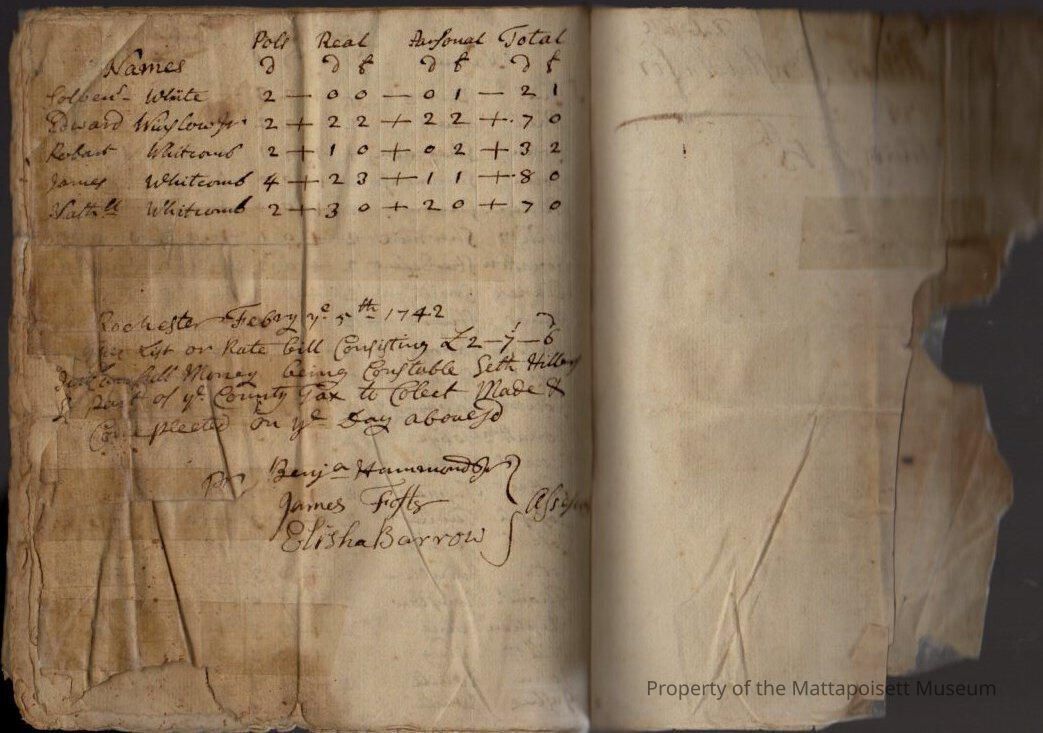 Poll Real Parsonal Total
Names d d f d f d f
White 2 — 0 0 — 0 1 — 2 1
Edward Winslow Jr 2 + 2 2 + 2 2 + 7 0
Robart Whitcomb 2 + 1 0 + 0 2 + 3 2
James Whitcomb 4 + 2 3 + 1 1 + 8 0
Nathll Whitcomb 2 + 3 0 + 2 0 + 7 0
Rochester Febry ye 5th 1742
List or Rate bill Consisting £2–7–6
bill Money being Constable Seth Hiller
part of ye County Tax to Colect Made &
Compleeted on ye Day abovesd
Pr Benja Hammond Jr
James Foster
Elisha Barrow
Property of the Mattapoisett Museum